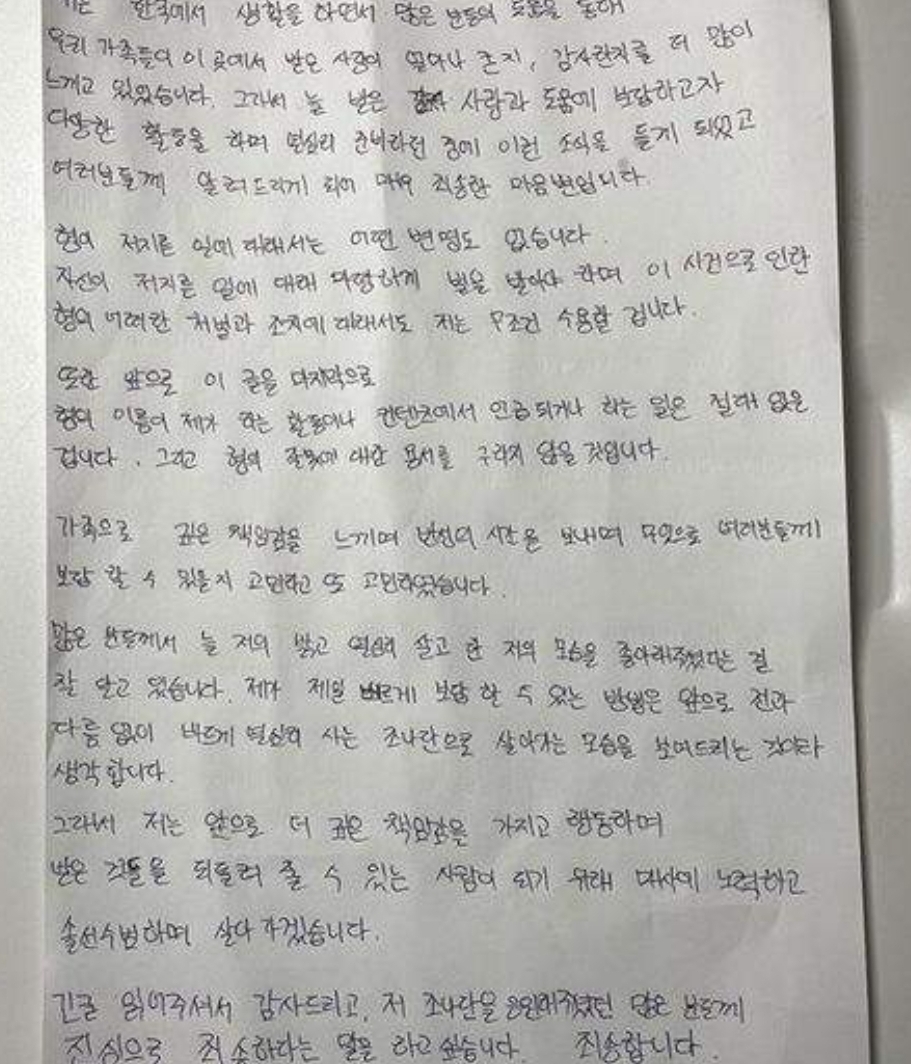 저는 한국에서 생활을 하면서 많은 분들의 도움을 통해
우리 가족들이 이 곳에서 받은 사랑이 얼마나 큰지, 감사한지를 더 많이
느끼고 있었습니다. 그래서 늘 받은 사랑과 도움에 보답하고자
다양한 활동을 하며 열심히 준비하던 중에 이런 소식을 듣게 되었고
여러분들께 알려드리게 되어 매우 죄송한 마음뿐입니다.
형이 저지른 일에 대해서는 어떤 변명도 없습니다.
자신이 저지른 일에 대해 마땅하게 벌을 받아야 하며 이 사건으로 인한
형의 어떠한 처벌과 조치에 대해서도 저는 무조건 수용할 겁니다.
또한 앞으로 이 글을 마지막으로
형의 이름이 제가 하는 활동이나 컨텐츠에서 언급되거나 하는 일은 절대 없을
겁니다. 그리고 형의 잘못에 대한 용서를 구하지 않을 것입니다.
가족으로 깊은 책임감을 느끼며 반성의 시간을 보내며 무엇으로 여러분들께
보답 할 수 있을지 고민하고 또 고민하였습니다.
많은 분들께서 늘 저의 밝고 열심히 살고 한 저의 모습을 좋아해주셨다는 걸
잘 알고 있습니다. 제가 제일 빠르게 보답 할 수 있는 방법은 앞으로 전과
다름 없이 바르게 열심히 사는 조나단으로 살아가는 모습을 보여드리는 것이라
생각 합니다.
그래서 저는 앞으로 더 깊은 책임감을 가지고 행동하며
받은 것들을 되돌려 줄 수 있는 사람이 되기 위해 매사에 노력하고
솔선수범하며 살아 가겠습니다.
긴글 읽어주셔서 감사드리고, 저 조나단을 응원해주셨던 많은 분들께
진심으로 죄송하다는 말을 하고 싶습니다. 죄송합니다.